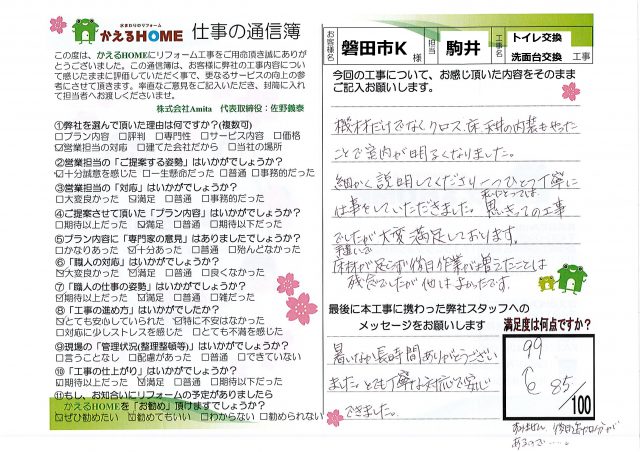 水まわりのリフォーム
かえるHOME 仕事の通信簿
この度は、かえるHOMEにリフォーム工事をご用命頂き誠にありが
とうございました。この通信簿は、お客様に弊社の工事内容につい
て感じたままに評価していただく事で、更なるサービスの向上の参
考にさせて頂きます。率直なご意見をご記入いただき、封筒に入れ
て担当者へお渡しくださいませ。
株式会社Amita 代表取締役:佐野義泰
①弊社を選んで頂いた理由は何ですか?(複数可)
□プラン内容 □評判 □専門性 □サービス内容 □価格
☑営業担当の対応 □建てた会社だから □当社の場所
②営業担当の「ご提案する姿勢」はいかがでしょうか?
☑十分誠意を感じた □一生懸命だった □普通 □事務的だった
③営業担当の「対応」はいかがでしょうか?
□大変良かった ☑満足 □普通 □事務的だった
④ご提案させて頂いた「プラン内容」はいかがでしょうか?
□期待以上だった ☑満足 □普通 □期待以下だった
⑤プラン内容に「専門家の意見」はありましたでしょうか?
□かなりあった ☑十分あった □普通 □殆んどなかった
⑥「職人の対応」はいかがでしょうか?
☑大変良かった ☑満足 □普通 □良くなかった
⑦「職人の仕事の姿勢」はいかがでしょうか?
☑期待以上だった ☑満足 □普通 □雑だった
⑧「工事の進め方」はいかがでしたか?
☑とても安心していられた ☑特に不安はなかった
□対応に少しストレスを感じた □とても不満を感じた
⑨現場の「管理状況(整理整頓等)」はいかがでしょうか?
□言うことなし □配慮があった □普通 □できていない
⑩「工事の仕上がり」はいかがでしょうか?
☑期待以上だった ☑満足 □普通 □期待以下だった
⑪もし、お知合いにリフォームの予定がありましたら
かえるHOMEを「お勧め」頂けますでしょうか?
☑ぜひ勧めたい ☑勧めてもいい □わからない □勧められない
お客様名 磐田市K 様 担当 駒井 工事名 トイレ交換
洗面台交換 工事
今回の工事について、お感じ頂いた内容をそのまま
ご記入お願いします。
機材だけでなくクロス、床、天井の内装もやった
ことで室内が明るくなりました。
細かく説明してくださり一つひとつ丁寧に
私にとっては
仕事をしていただきました。思いきっての工事
でしたが大変満足しております。
手違いで
床材が足らず後日作業が増えたことは
残念でしたが他は良かったです。
最後に本工事に携わった弊社スタッフへの
メッセージをお願いします
暑いなか長時間ありがとうござい
ました。とても丁寧な対応で安心
できました。
満足度は何点ですか?
99
85/100